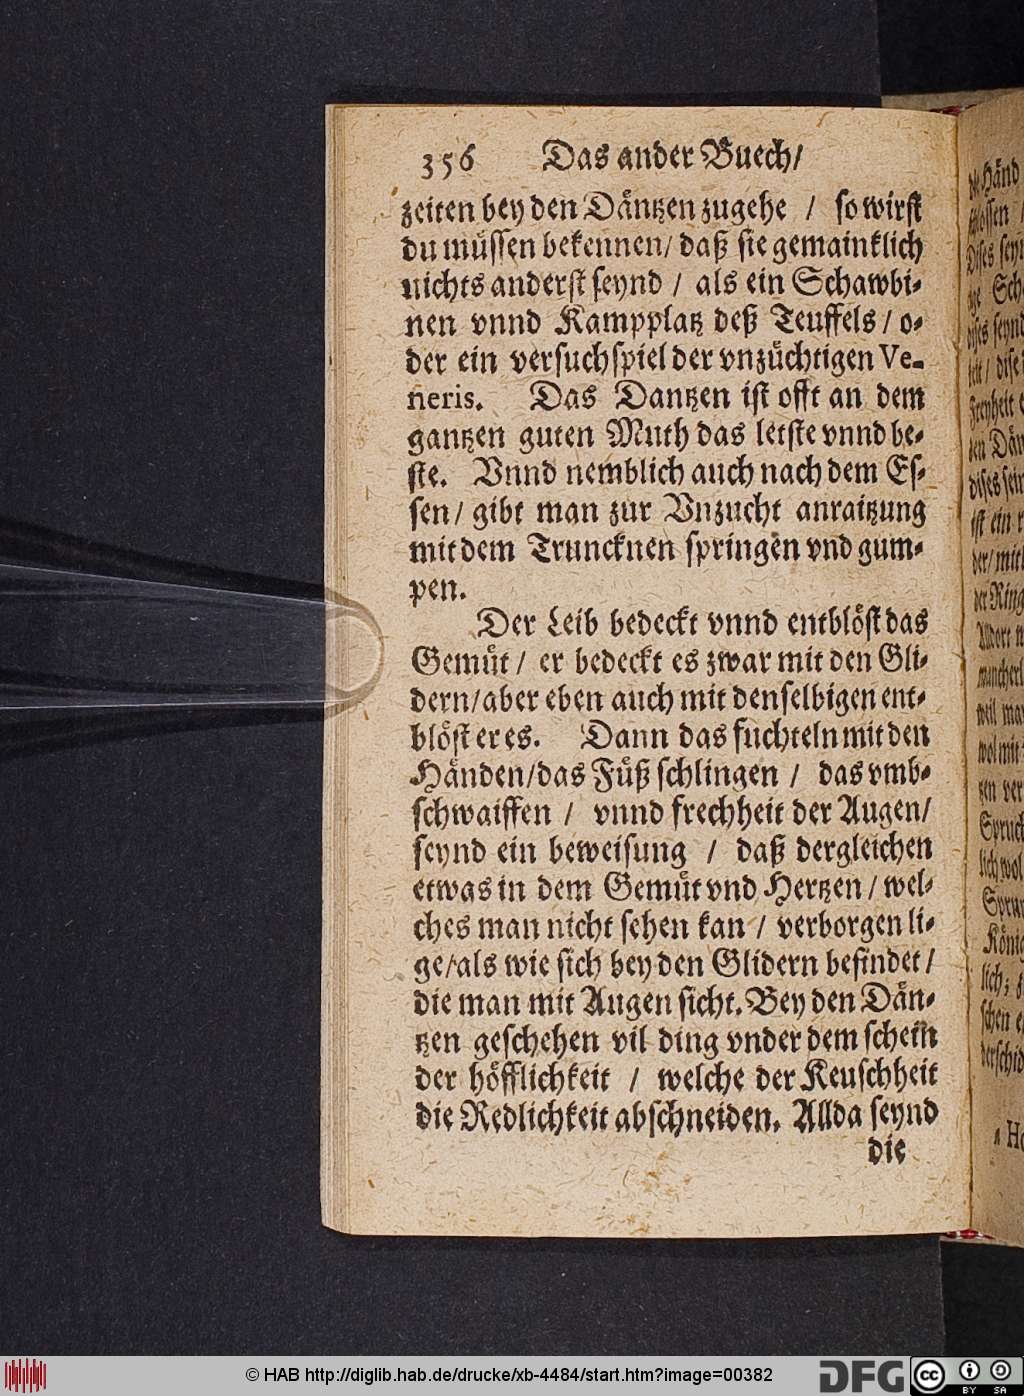 356 Das ander Buech/
zeiten bey den Däntzen zugehe / so wirst
du müssen bekennen/ daß sie gemainklich
nichts anderst seynd / als ein Schawbi-
nen vnnd Kampplatz deß Teuffels / o-
der ein versuchspiel der vnzüchtigen Ve-
neris. Das Dantzen ist offt an dem
gantzen guten Muth das letste vnnd be-
ste. Vnnd nemblich auch nach dem Es-
sen / gibt man zur Vnzucht anraitzung
mit dem Truncknen springen vnd gum-
pen.
Der Leib bedeckt vnnd entblöst das
Gemüt / er bedeckt es zwar mit den Gli-
dern/aber eben auch mit denselbigen ent-
blöst er es. Dann das fuchteln mit den
Händen/das Füß schlingen / das vmb-
schwaiffen / vnnd frechheit der Augen/
seynd ein beweisung / daß dergleichen
etwas in dem Gemüt vnd Hertzen / wel-
ches man nicht sehen kan / verborgen li-
ge/als wie sich bey den Glidern befindet /
die man mit Augen sicht. Bey den Dän-
tzen geschehen vil ding vnder dem schein
der höfflichkeit / welche der Keuschheit
die Redlichkeit abschneiden. Allda seynd
die
© HAB http://diglib.hab.de/drucke/xb-4484/start.htm?image=00382
DFG
cc BY SA